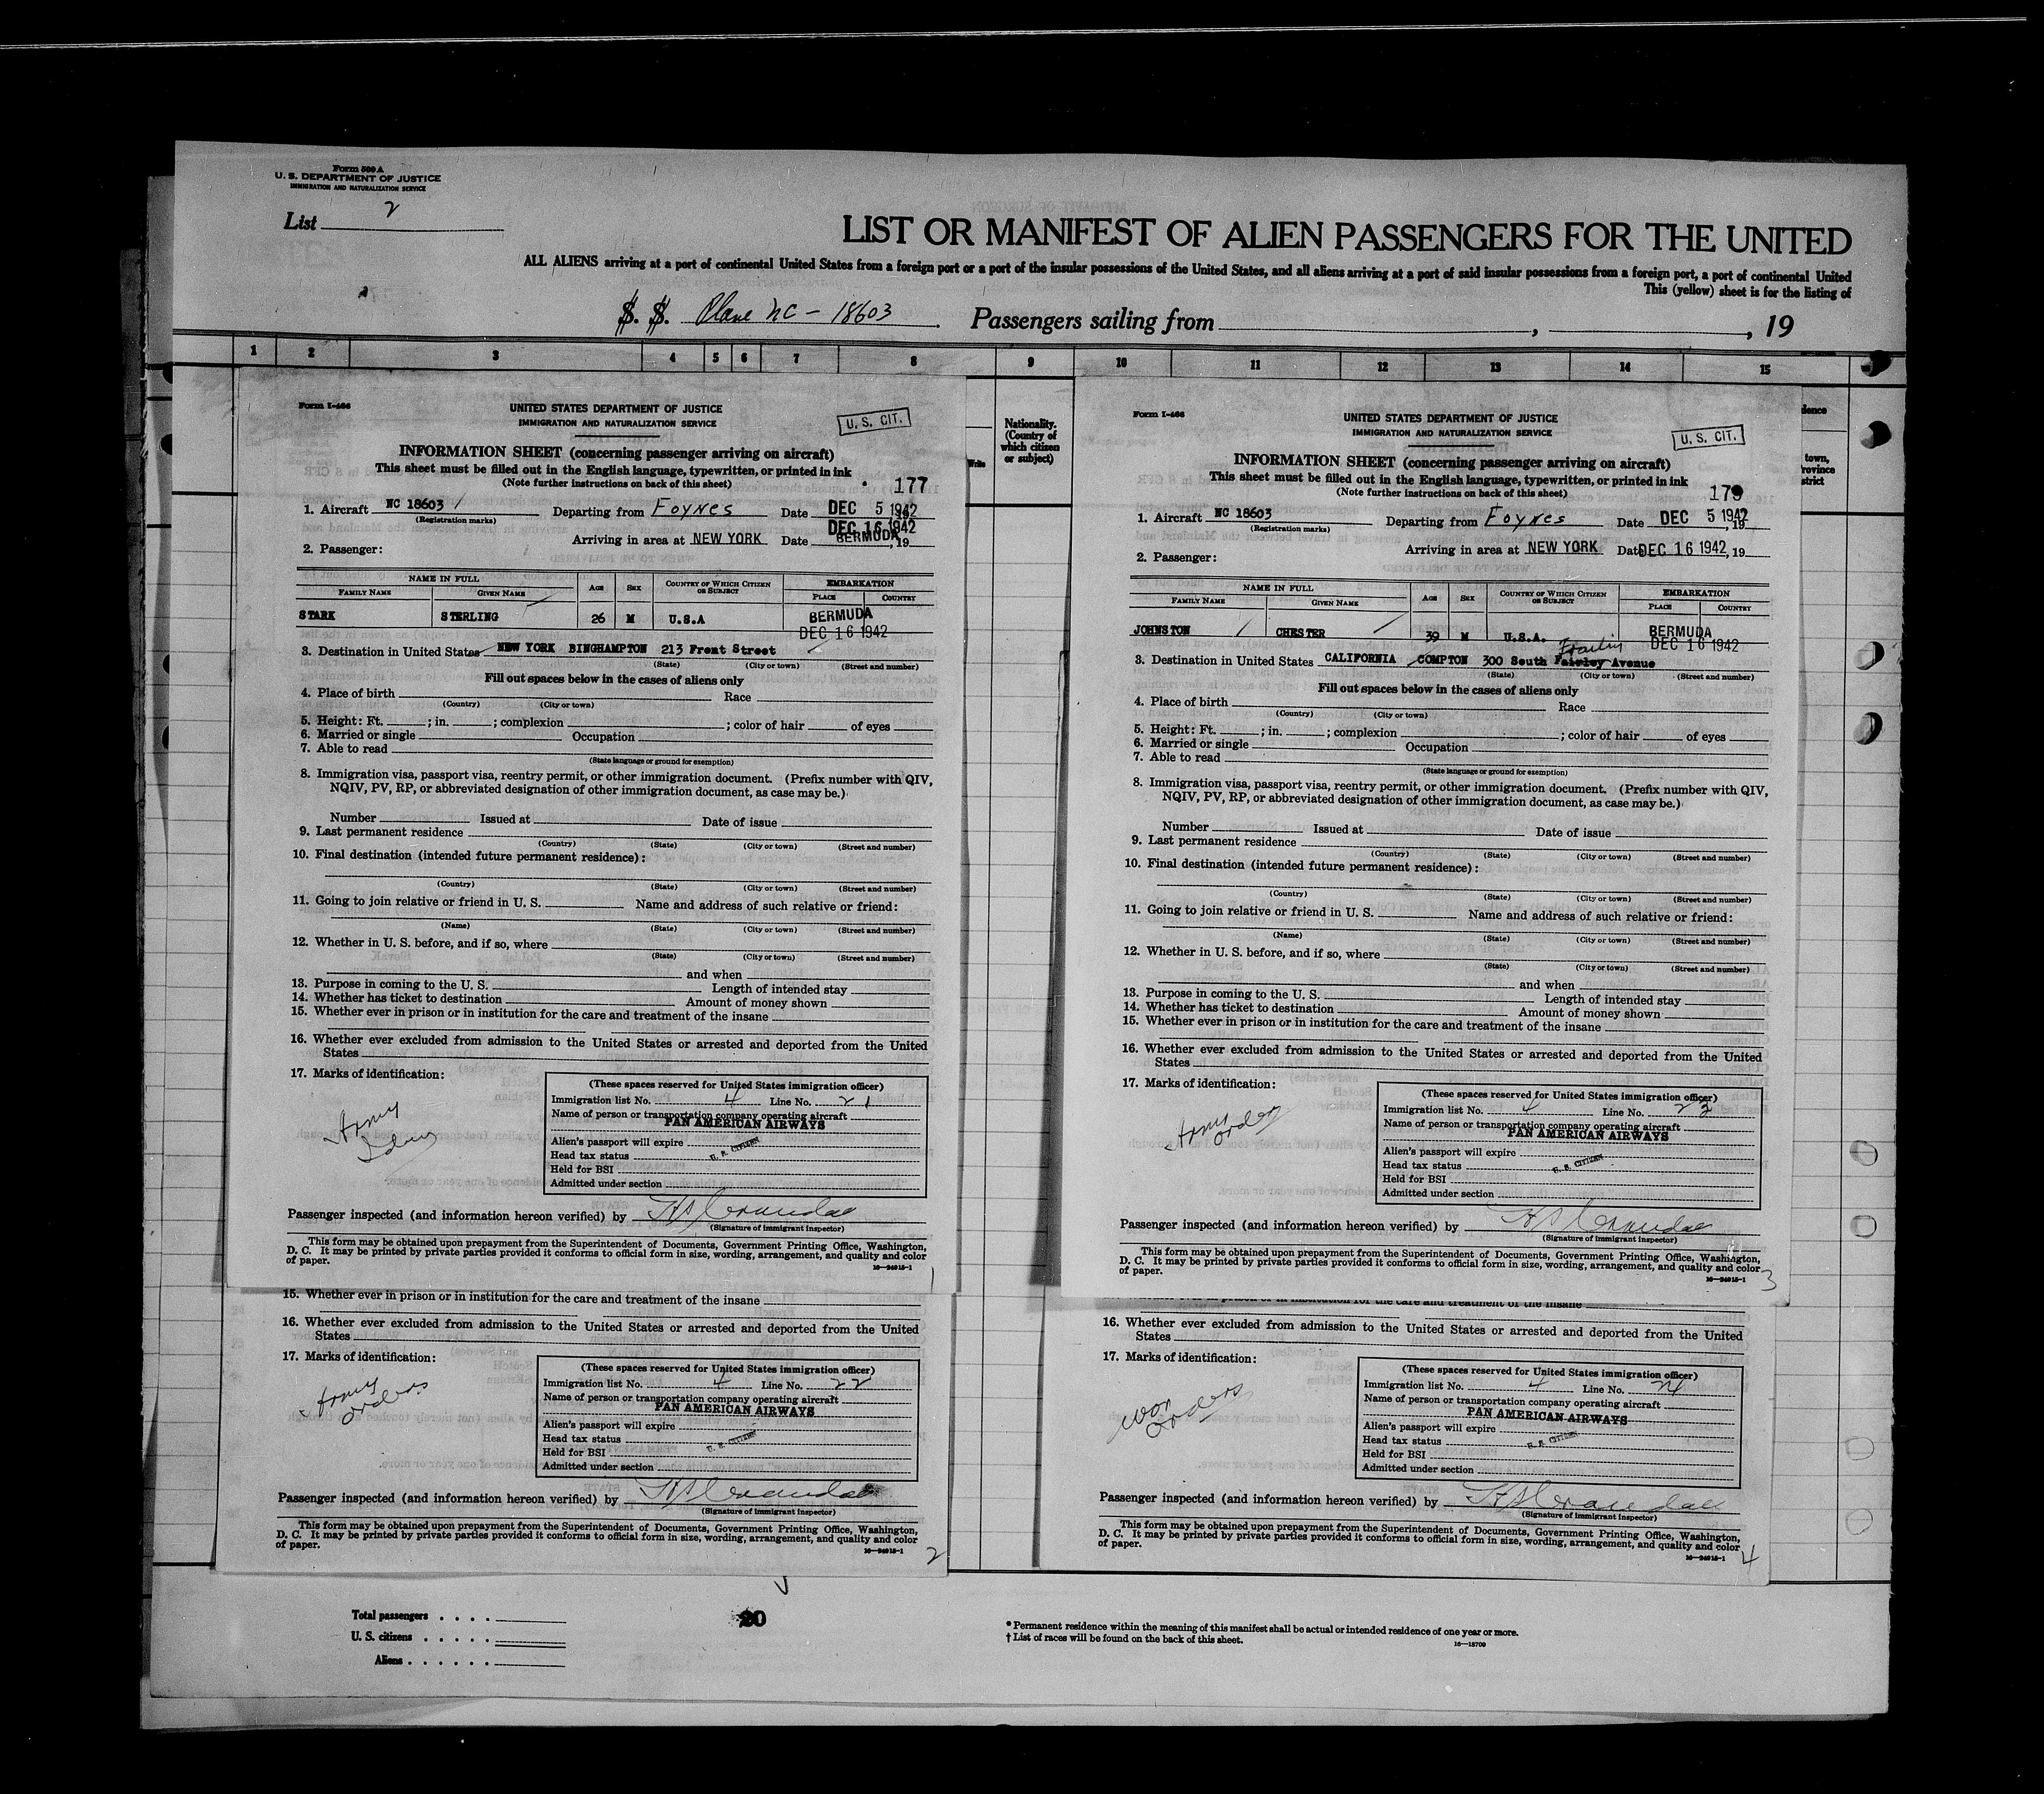 Form 500 A
U. S. DEPARTMENT OF JUSTICE
IMMIGRATION AND NATURALIZATION SERVICE
List 2
LIST OR MANIFEST OF ALIEN PASSENGERS FOR THE UNITED
ALL ALIENS arriving at a port of continental United States from a foreign port or a port of the insular possessions of the United States, and all aliens arriving at a port of said insular possessions from a foreign port, a port of continental United
This (yellow) sheet is for the listing of
S. S. Plane NC - 18603 Passengers sailing from , , 19
1 2 3 4 5 6 7 8 9 10 11 12 13 14 15
Nationality.
(Country of
which citizen
or subject)
Form I-466
UNITED STATES DEPARTMENT OF JUSTICE
IMMIGRATION AND NATURALIZATION SERVICE
U. S. CIT.
INFORMATION SHEET (concerning passenger arriving on aircraft)
This sheet must be filled out in the English language, typewritten, or printed in ink
(Note further instructions on back of this sheet)
177
1. Aircraft NC 18603 Departing from Foynes Date DEC 5 1942
(Registration marks)
DEC 16 1942
Arriving in area at NEW YORK Date BERMUDA, 19
2. Passenger:
NAME IN FULL AGE SEX COUNTRY OF WHICH CITIZEN OR SUBJECT EMBARKATION
FAMILY NAME GIVEN NAME PLACE COUNTRY
STARK STERLING 26 M U.S.A BERMUDA
DEC 16 1942
3. Destination in United States NEW YORK BINGHAMPTON 213 Front Street
(State) (City or town) (Street and number)
Fill out spaces below in the cases of aliens only
4. Place of birth Race
(Country) (City or town)
5. Height: Ft. ; in. ; complexion ; color of hair of eyes
6. Married or single Occupation
7. Able to read
(State language or ground for exemption)
8. Immigration visa, passport visa, reentry permit, or other immigration document. (Prefix number with QIV,
NQIV, PV, RP, or abbreviated designation of other immigration document, as case may be.)
Number Issued at Date of issue
9. Last permanent residence
(Country) (State) (City or town) (Street and number)
10. Final destination (intended future permanent residence):
(Country) (State) (City or town) (Street and number)
11. Going to join relative or friend in U. S. Name and address of such relative or friend:
(Name) (State) (City or town) (Street and number)
12. Whether in U. S. before, and if so, where
(State) (City or town) (Street and number)
and when
13. Purpose in coming to the U. S. Length of intended stay
14. Whether has ticket to destination Amount of money shown
15. Whether ever in prison or in institution for the care and treatment of the insane
16. Whether ever excluded from admission to the United States or arrested and deported from the United
States
17. Marks of identification:
Army
(These spaces reserved for United States immigration officer)
Immigration list No. 4 Line No. 21
Name of person or transportation company operating aircraft
PAN AMERICAN AIRWAYS
Alien's passport will expire
U. S. CITIZEN
Head tax status
Held for BSI
Admitted under section
Passenger inspected (and information hereon verified) by
(Signature of immigrant inspector)
This form may be obtained upon prepayment from the Superintendent of Documents, Government Printing Office, Washington,
D. C. It may be printed by private parties provided it conforms to official form in size, wording, arrangement, and quality and color
of paper.
16—24915-1
1
15. Whether ever in prison or in institution for the care and treatment of the insane
16. Whether ever excluded from admission to the United States or arrested and deported from the United
States
17. Marks of identification:
Army
orders
(These spaces reserved for United States immigration officer)
Immigration list No. 4 Line No. 22
Name of person or transportation company operating aircraft
PAN AMERICAN AIRWAYS
Alien's passport will expire
U. S. CITIZEN
Head tax status
Held for BSI
Admitted under section
Passenger inspected (and information hereon verified) by
(Signature of immigrant inspector)
This form may be obtained upon prepayment from the Superintendent of Documents, Government Printing Office, Washington,
D. C. It may be printed by private parties provided it conforms to official form in size, wording, arrangement, and quality and color
of paper.
16—24915-1
2
Form I-466
UNITED STATES DEPARTMENT OF JUSTICE
IMMIGRATION AND NATURALIZATION SERVICE
U. S. CIT.
INFORMATION SHEET (concerning passenger arriving on aircraft)
This sheet must be filled out in the English language, typewritten, or printed in ink
(Note further instructions on back of this sheet)
179
1. Aircraft NC 18603 Departing from Foynes Date DEC 5 1942
(Registration marks)
Arriving in area at NEW YORK Date DEC 16 1942, 19
2. Passenger:
NAME IN FULL AGE SEX COUNTRY OF WHICH CITIZEN OR SUBJECT EMBARKATION
FAMILY NAME GIVEN NAME PLACE COUNTRY
JOHNSTON CHESTER 39 M U.S.A. BERMUDA
DEC 16 1942
3. Destination in United States CALIFORNIA COMPTON 300 South Fairley Avenue
(State) (City or town) (Street and number)
Fill out spaces below in the cases of aliens only
4. Place of birth Race
(Country) (City or town)
5. Height: Ft. ; in. ; complexion ; color of hair of eyes
6. Married or single Occupation
7. Able to read
(State language or ground for exemption)
8. Immigration visa, passport visa, reentry permit, or other immigration document. (Prefix number with QIV,
NQIV, PV, RP, or abbreviated designation of other immigration document, as case may be.)
Number Issued at Date of issue
9. Last permanent residence
(Country) (State) (City or town) (Street and number)
10. Final destination (intended future permanent residence):
(Country) (State) (City or town) (Street and number)
11. Going to join relative or friend in U. S. Name and address of such relative or friend:
(Name) (State) (City or town) (Street and number)
12. Whether in U. S. before, and if so, where
(State) (City or town) (Street and number)
and when
13. Purpose in coming to the U. S. Length of intended stay
14. Whether has ticket to destination Amount of money shown
15. Whether ever in prison or in institution for the care and treatment of the insane
16. Whether ever excluded from admission to the United States or arrested and deported from the United
States
17. Marks of identification:
Army
order
(These spaces reserved for United States immigration officer)
Immigration list No. 4 Line No. 23
Name of person or transportation company operating aircraft
PAN AMERICAN AIRWAYS
Alien's passport will expire
U. S. CITIZEN
Head tax status
Held for BSI
Admitted under section
Passenger inspected (and information hereon verified) by
(Signature of immigrant inspector)
This form may be obtained upon prepayment from the Superintendent of Documents, Government Printing Office, Washington,
D. C. It may be printed by private parties provided it conforms to official form in size, wording, arrangement, and quality and color
of paper.
16—24915-1
3
16. Whether ever excluded from admission to the United States or arrested and deported from the United
States
17. Marks of identification:
War
orders
(These spaces reserved for United States immigration officer)
Immigration list No. 4 Line No. 24
Name of person or transportation company operating aircraft
PAN AMERICAN AIRWAYS
Alien's passport will expire
U. S. CITIZEN
Head tax status
Held for BSI
Admitted under section
Passenger inspected (and information hereon verified) by
(Signature of immigrant inspector)
This form may be obtained upon prepayment from the Superintendent of Documents, Government Printing Office, Washington,
D. C. It may be printed by private parties provided it conforms to official form in size, wording, arrangement, and quality and color
of paper.
16—24915-1
4
Total passengers . . . .
U. S. citizens . . . . .
Aliens . . . . . .
20
* Permanent residence within the meaning of this manifest shall be actual or intended residence of one year or more.
† List of races will be found on the back of this sheet.
16—18709